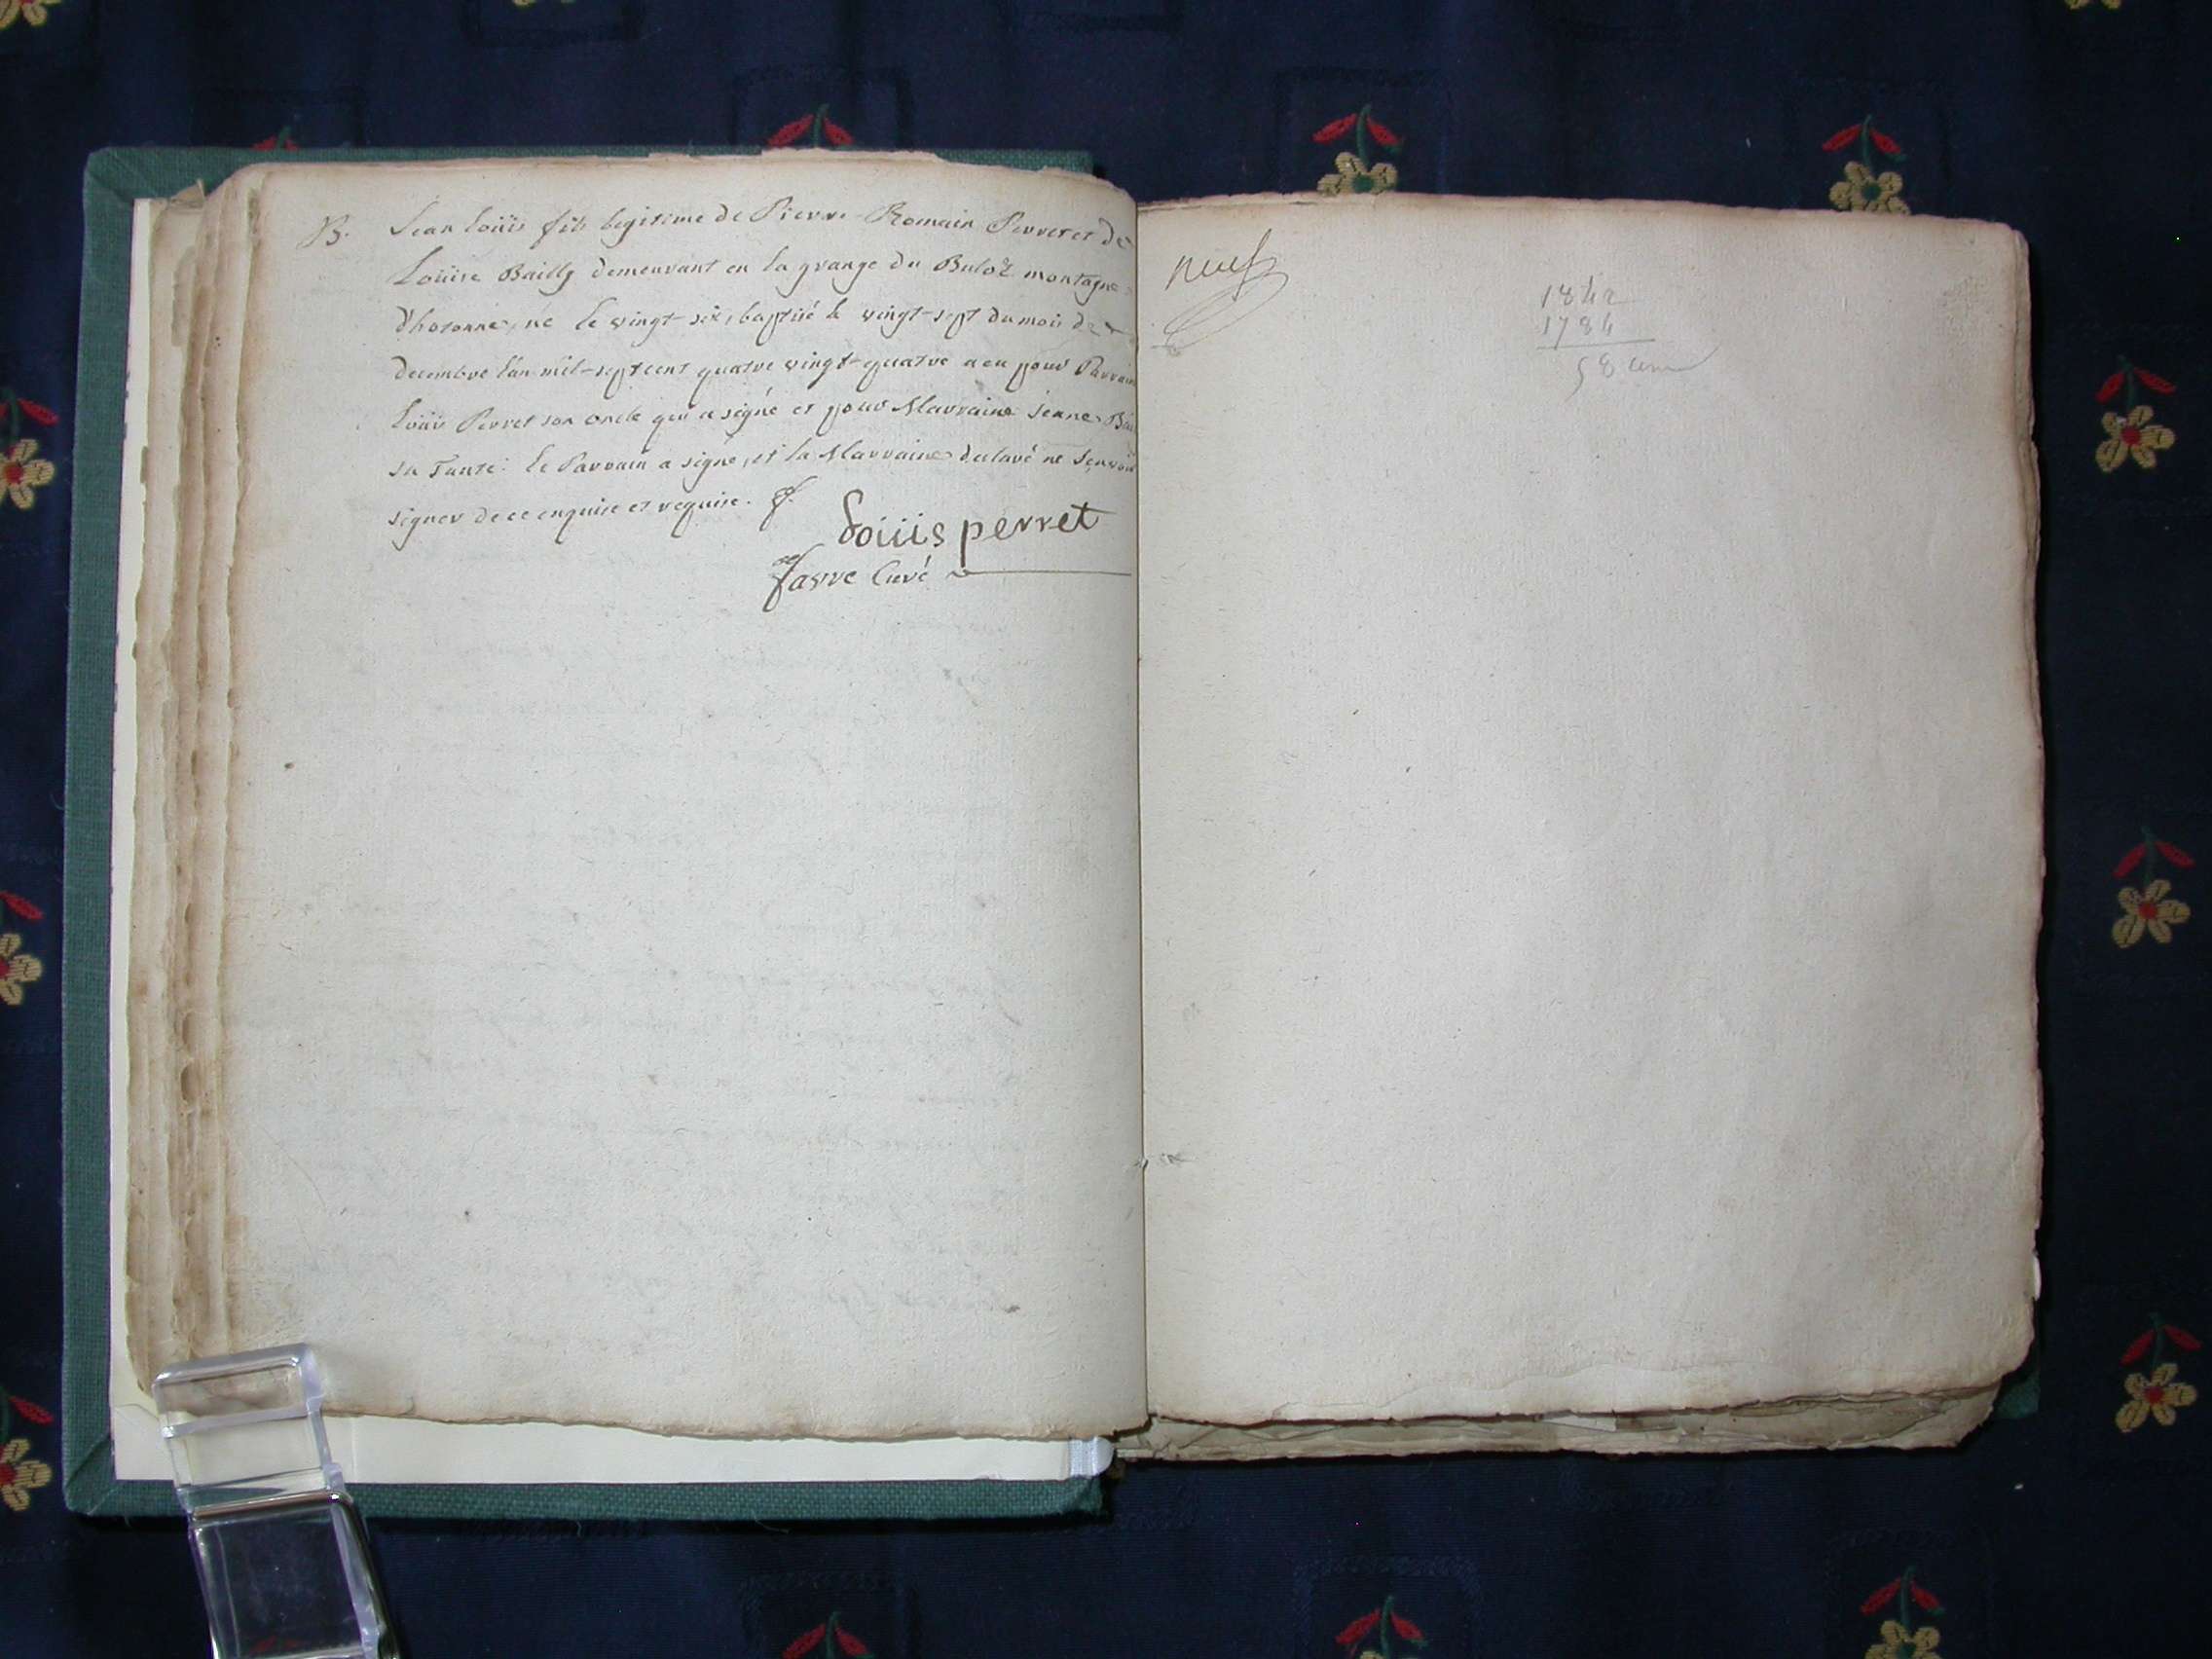 B. Jean Loüis fils legitime de Pierre-Romain Perret et de
Loüise Bailly demeurant en la grange du Buloz montagne
d'hotonne, né le vingt-six, baptisé le vingt-sept du mois de
decembre l'an mil-sept cent quatre vingt-quatre a eu pour Parrain
Loüis Perret son oncle qui a signé et pour Marraine Jeanne
sa Tante. Le Parrain a signé, et la Marraine declaré ne sçavoir
signer de ce enquise et requise. f.
Loüis perret
favre Curé
neuf
1842
1784
58 ans